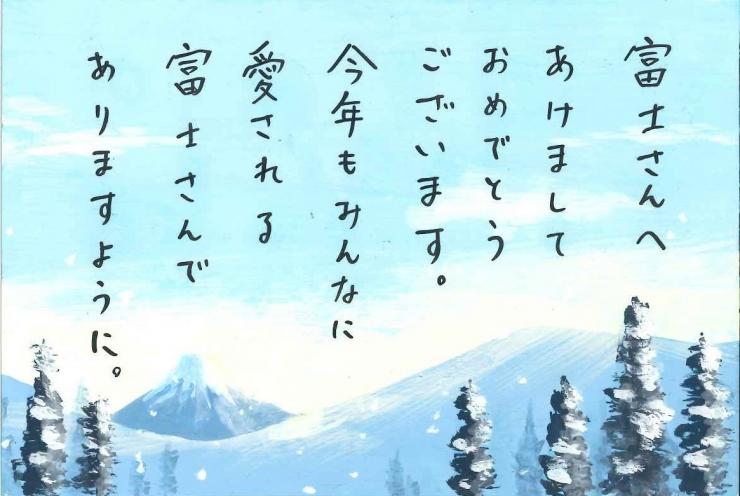 富士さんへ
あけまして
おめでとう
ございます。
今年もみんなに
愛される
富士さんで
ありますように。